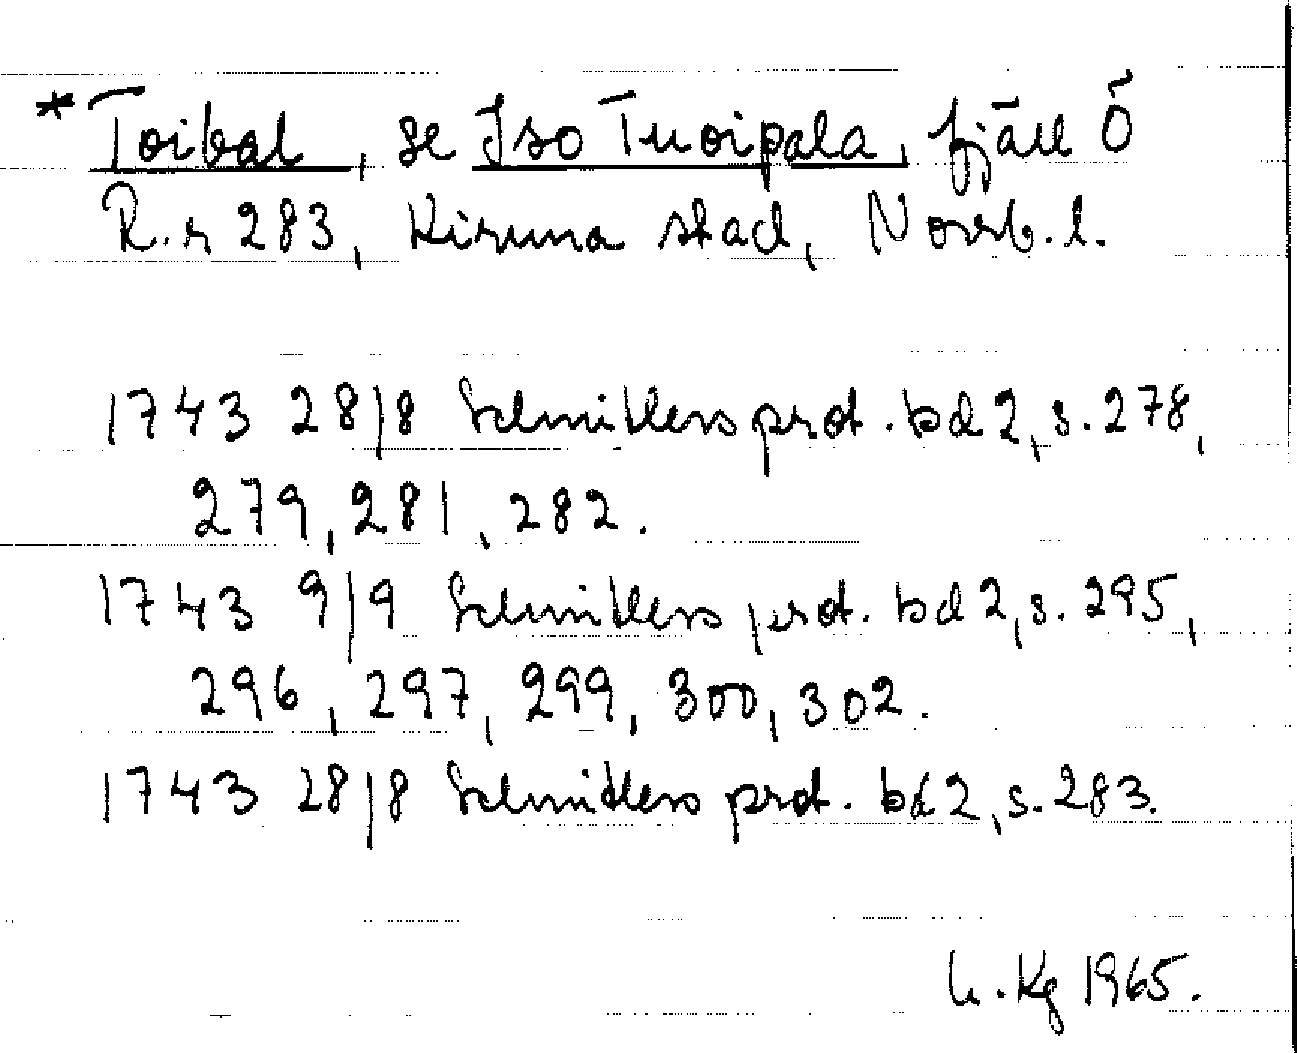 *Toibal, se Iso Tuoipala, fjäll Ö
R.r 283, Kiruna stad, Norrb.l.
1743 28/8 Schnitlers prot. bd 2, s. 278,
279, 281, 282.
1743 9/9 Schnitlers prot. bd 2, s. 295,
296, 297, 299, 300, 302.
1743 28/8 Schnitlers prot. bd 2, s. 283.
Kg 1965.